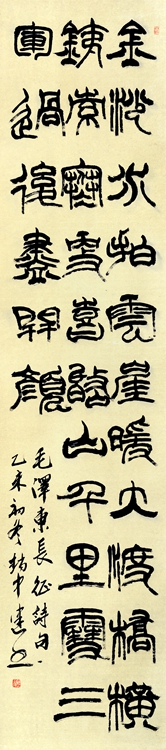 金沙水拍雲崖暖大渡橋橫
銕索寒更喜岷山千里雪三
軍過後盡開顏
毛澤東長征詩句
乙未初冬